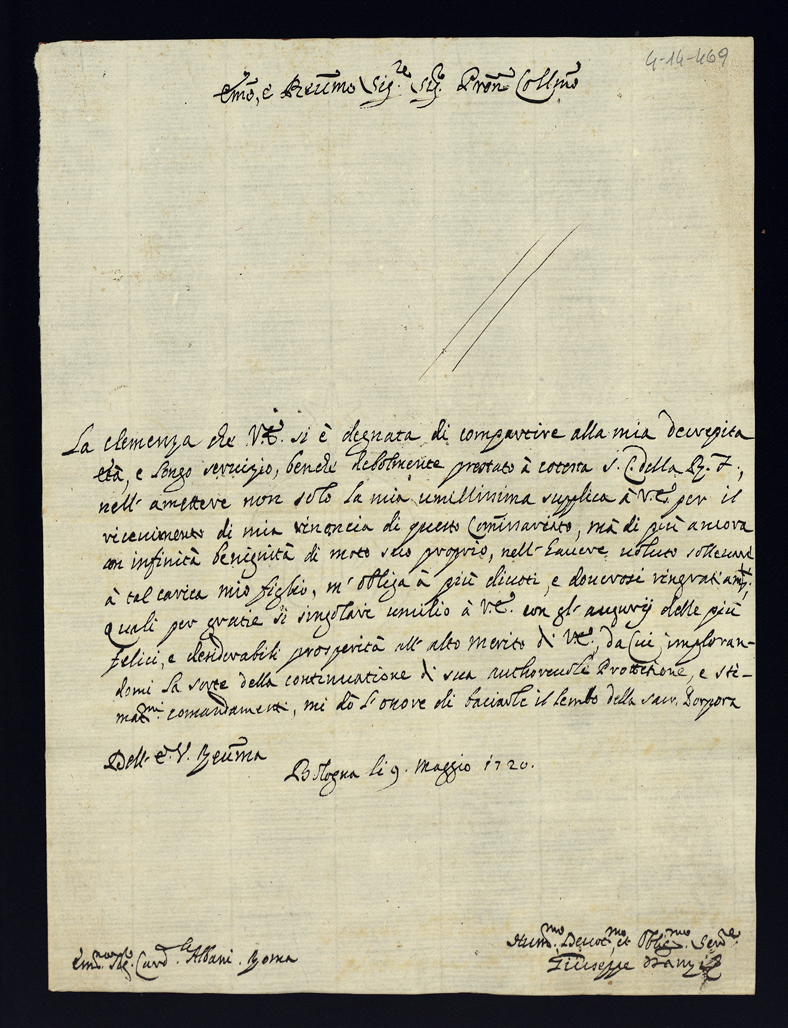 4-14-469
Emo, e Reumo Sig.re Sig. Prōn Collmo
La clemenza che V.E. si è degnata di compartire alla mia decrepita
età, e longo servigio, benche debolmente prestato à cotesta S. C. della R. F.,
nell'ametere non solo la mia umilissima supplica à V.E. per il
ricevimento di mia renoncia di questo Comissariato, mà di più ancora
con infinità benignità di moto suo proprio, nell'havere voluto sollevare
à tal carica mio figlio, m'obliga à più divoti, e doverosi ringratiamti,
Quali per gratie si singolare umilio à V.E. con gl'augurij delle più
felici, e desiderabili prosperità all'alto merito di V.E., da Cui imploran-
domi la sorte della continuatione di sua authorevole Protetione, e sti-
matmi comandamenti, mi dò l'onore di baciarle il lembo della sacr. Porpora
Dell'E.V. Reuma
Bologna li 9. Maggio 1720.
Humo. Devotmo, et Obligmo Serve
Emo Sig. Card.le Albani. Roma
Giuseppe